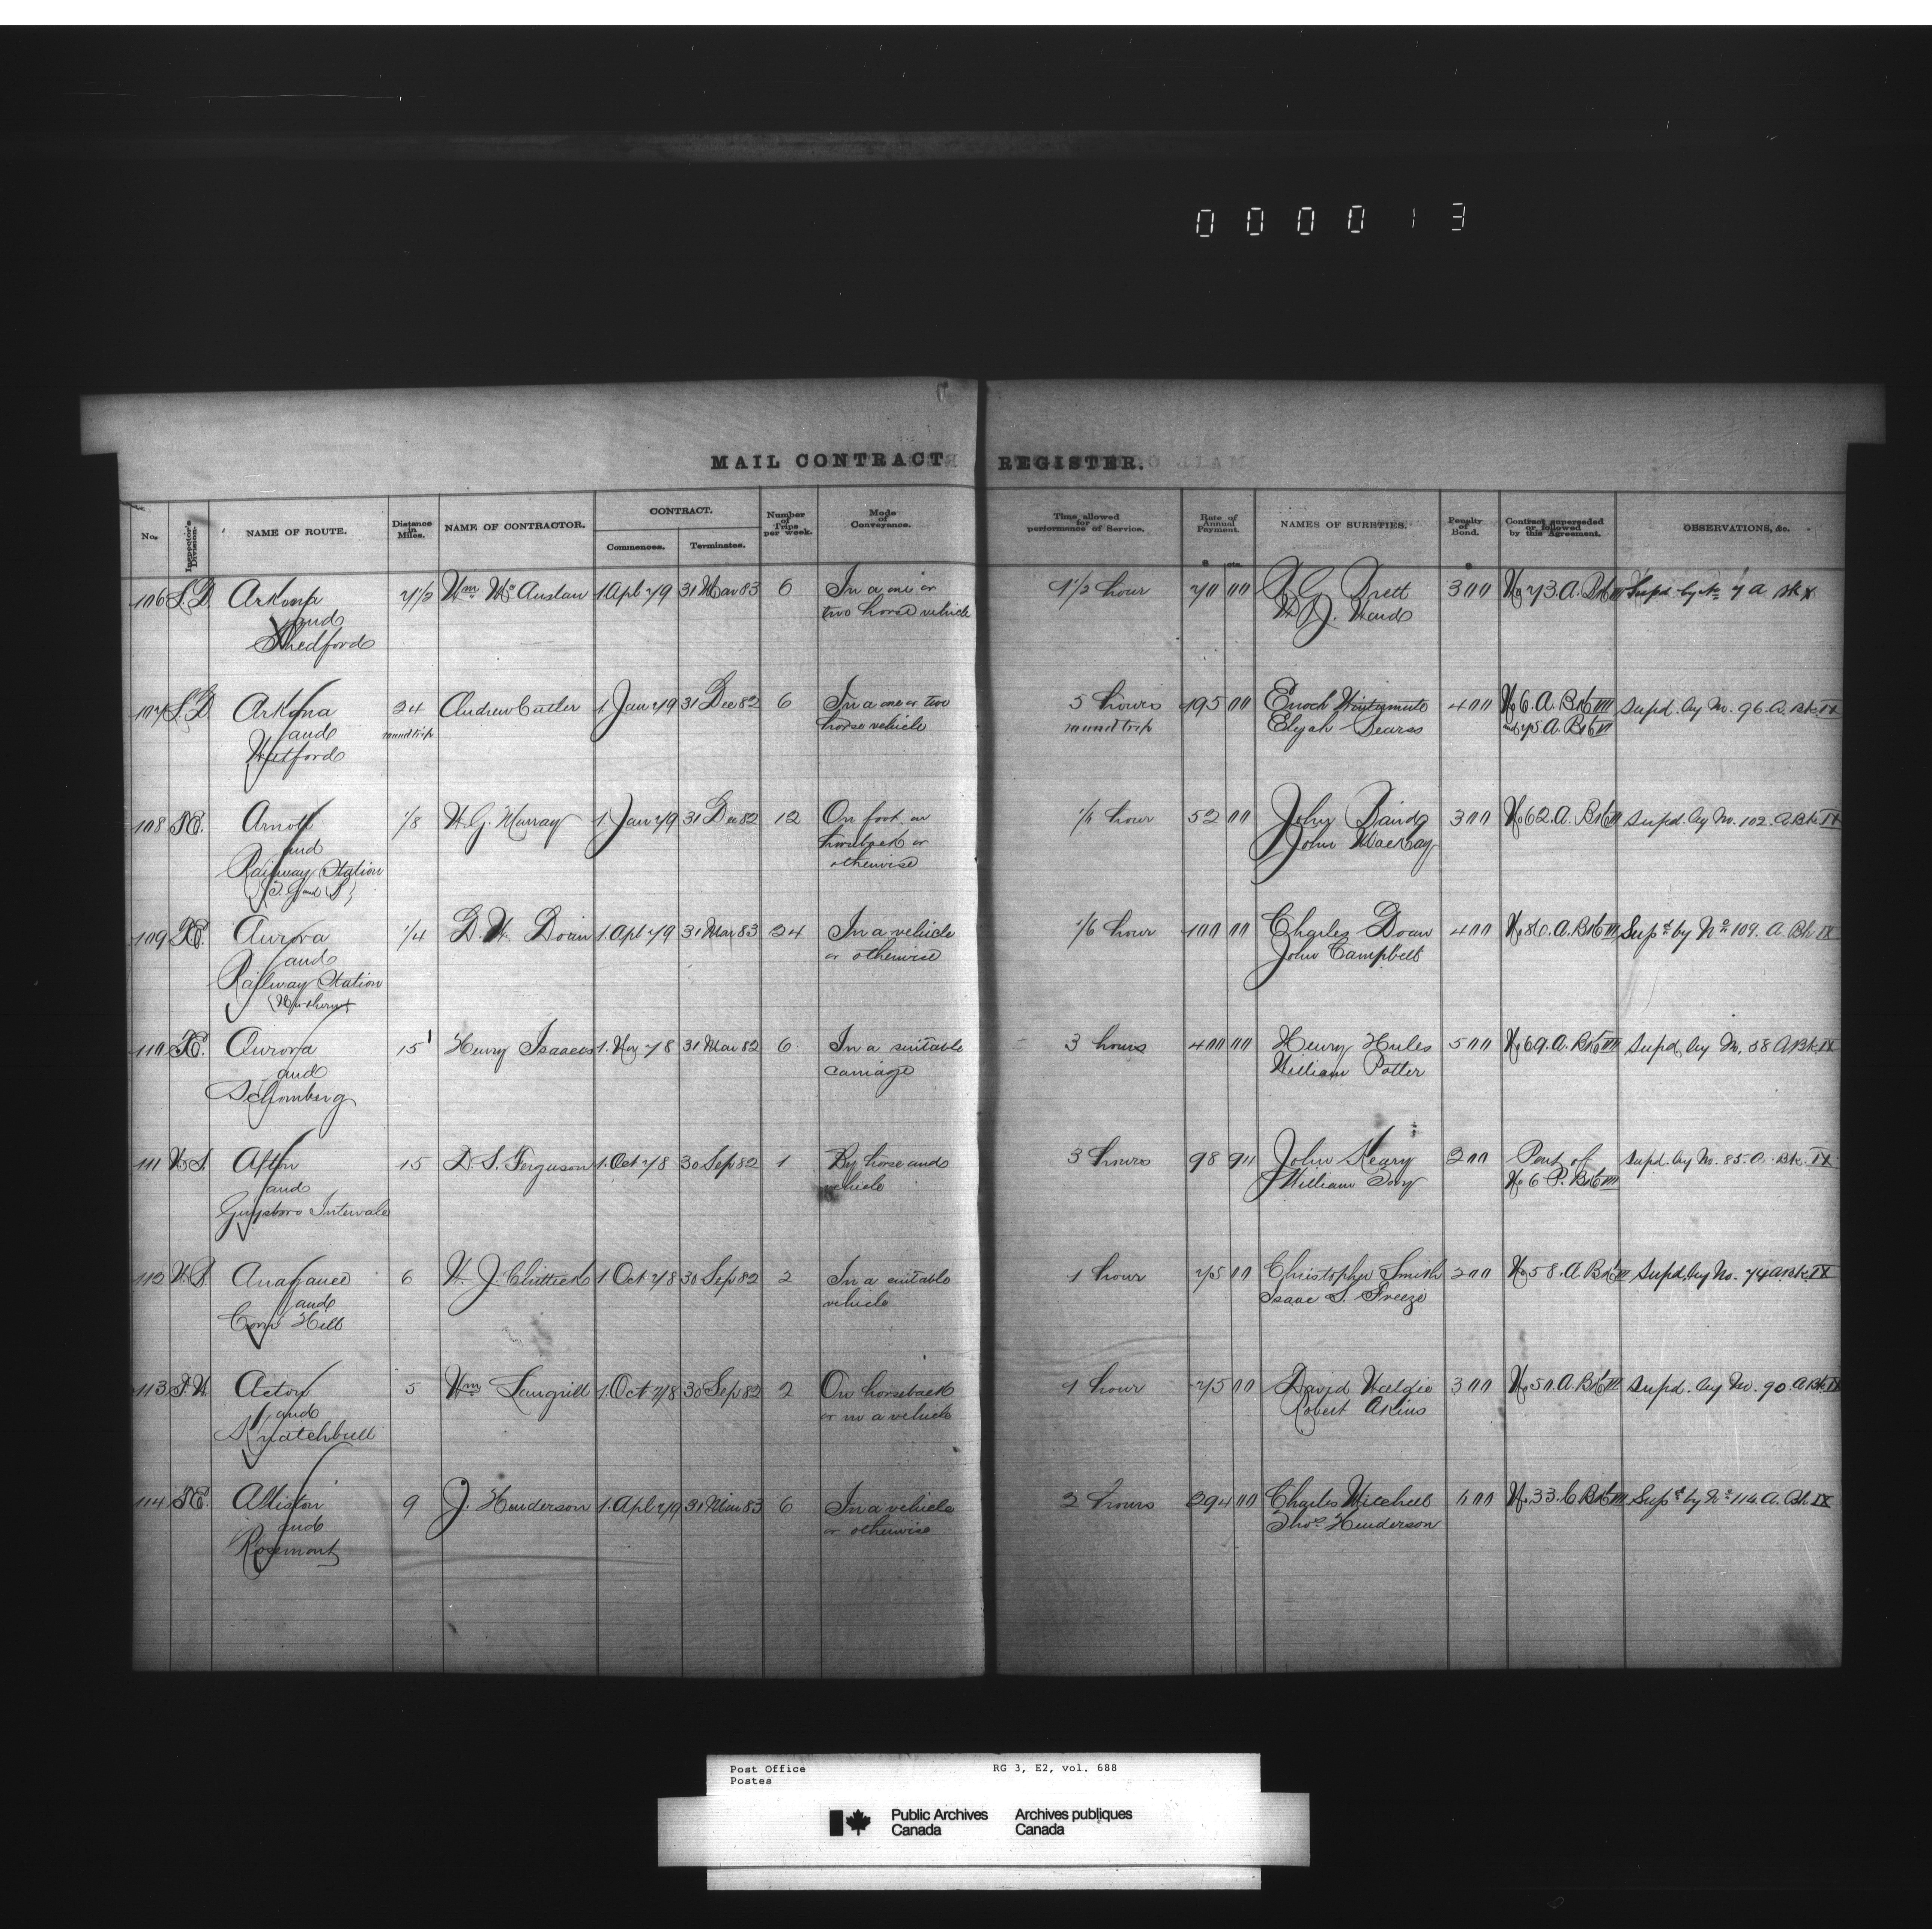 000013
MAIL CONTRACT REGISTER.
No. Inspector's Division. NAME OF ROUTE. Distance in Miles. NAME OF CONTRACTOR. CONTRACT. Commences. Terminates. Number of Trips per week. Mode of Conveyance. Time allowed for performance of Service. Rate of Annual Payment. NAMES OF SURETIES. Penalty of Bond. Contract superseded or followed by this Agreement. OBSERVATIONS, &c.
$ cts. $
106 L.D. Arkona 7 1/2 Wm Mc Auslan 1. Apl 79 31 Mar 83 6 In a one or 1 1/2 hour 70 00 300 No 73. A. Bk VII Supd by No 7 A Bk X
and two horse vehicle
Thedford
107 L.D. Arkona 24 Andrew Cutler 1. Jan 79 31 Dec 82 6 In a one or two 5 hours 495 00 Enoch Wintermute 400 No 6. A. Bk VIII Supd. by No. 96. A. Bk. IX
and round trip horse vehicle round trip Elijah Searss and 75 A. Bk VII
Watford
108 T.E. Arnott 1/8 H. G. Murray 1. Jan 79 31 Dec 82 12 On foot on 1/4 hour 52 00 John Baird 300 No 62. A. Bk VII Supd. by No. 102. A. Bk IX
and horseback or John MacKay
Railway Station otherwise
(T. G and B)
109 T.E. Aurora 1/4 D. W. Doan 1. Apl 79 31 Mar 83 24 In a vehicle 1/6 hour 100 00 Charles Doan 400 No 86. A. Bk VII Supd by No 109. A. Bk IX
and or otherwise John Campbell
Railway Station
(Northern)
110 T.E. Aurora 15 Henry Isaacs 1. Nov 78 31 Mar 82 6 In a suitable 3 hours 400 00 Henry Hules 500 No 69. A. Bk VII Supd. by No. 58 A Bk. IX
and carriage William Potter
Schomberg
111 N.S. Afton 15 D. S. Ferguson 1. Oct 78 30 Sep 82 1 By horse and 3 hours 98 94 John Keary 200 Part of Supd. by No. 85. A. Bk. IX
and vehicle William Tory No 6 P. Bk VII
Guysboro Intervale
112 N.B. Anagance 6 W. J. Chittick 1 Oct 78 30 Sep 82 2 In a suitable 1 hour 75 00 Christopher Smith 200 No 58. A Bk VII Supd. by No. 74 A Bk. IX
and vehicle Isaac S. Freeze
Corn Hill
113 Acton 5 Wm Langrill 1. Oct 78 30 Sep 82 2 On horseback 1 hour 75 00 David Waldie 300 No 50. A. Bk VII Supd. by No. 90. A Bk. IX
and or in a vehicle Robert Akins
Knatchbull
114 T.E. Alliston 9 J. Henderson 1. Apl 79 31 Mar 83 6 In a vehicle 2 hours 294 00 Charles Mitchell 600 No 33. C Bk VII Supd by No 114 A. Bk IX
and or otherwise Thos Henderson
Rosemont
Post Office RG 3, E2, vol. 688
Postes
Public Archives Archives publiques
Canada Canada